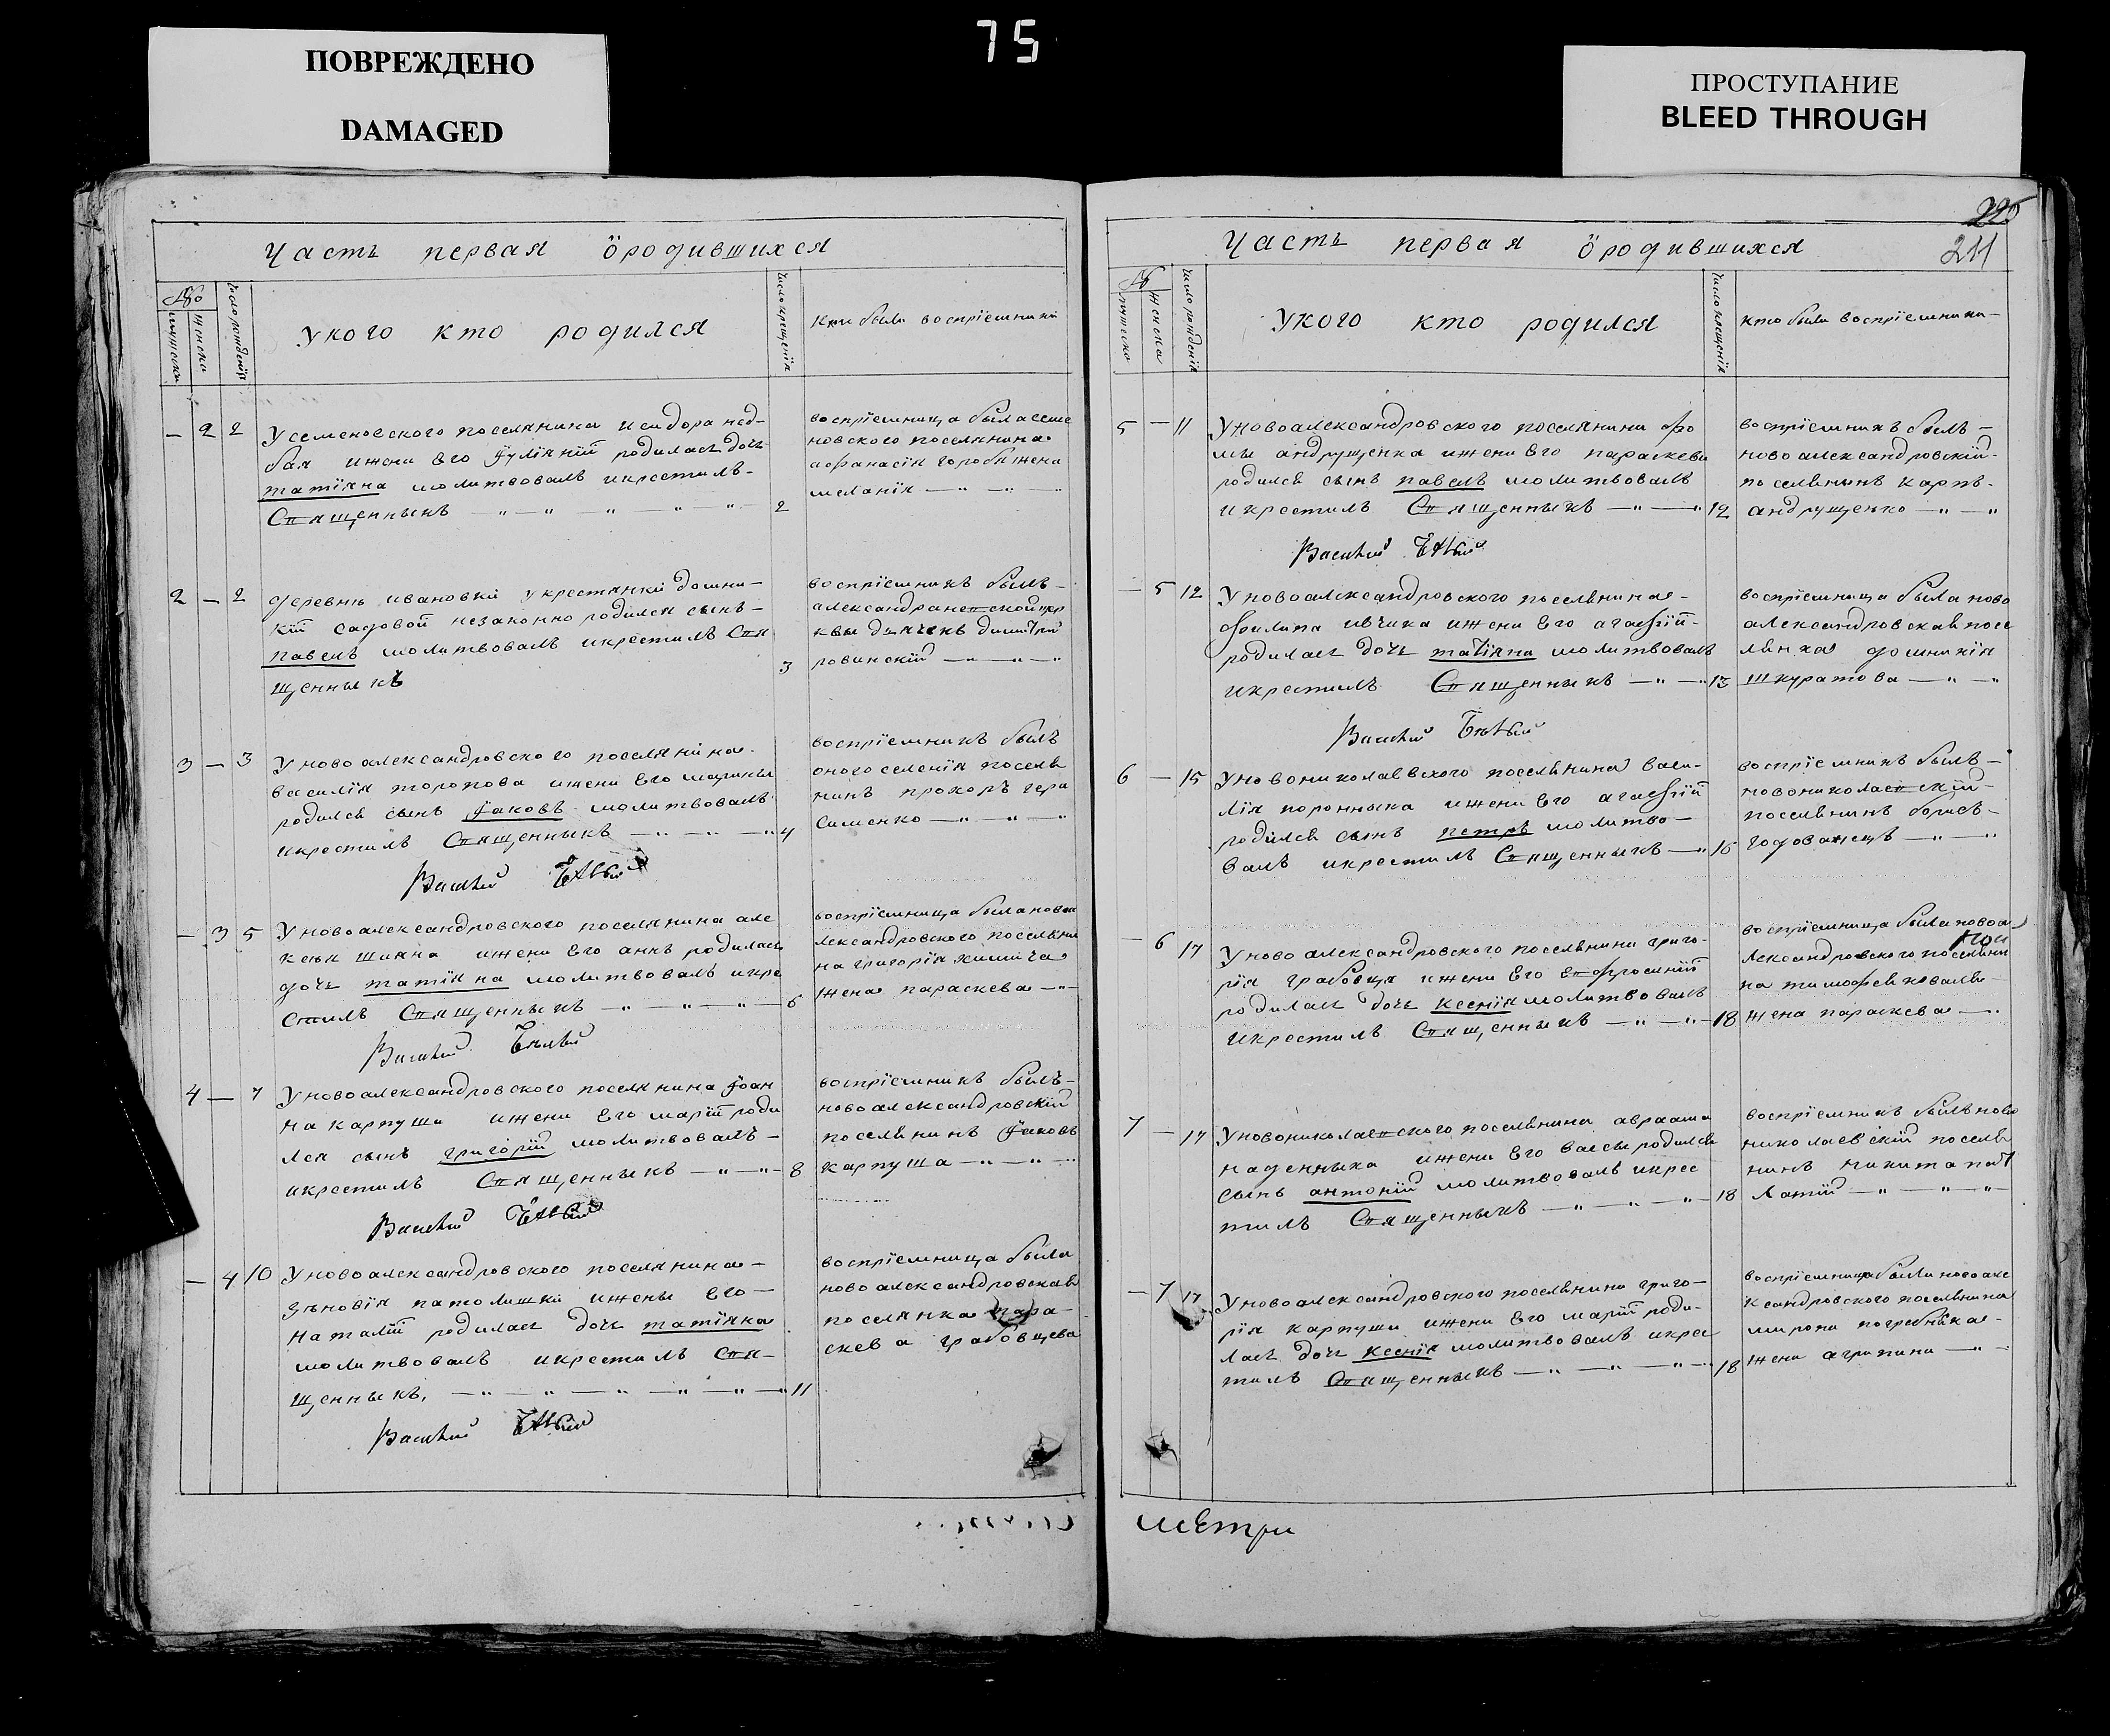 ПОВРЕЖДЕНО
DAMAGED
75
ПРОСТУПАНИЕ
BLEED THROUGH
Часть первая ѻродившихся
№
мужеска
женска
Число рожденія
Укого кто родился
Число крещенія
Кто были воспріемники
— 2 2
У семеновского поселянина исидора нед-
бая ижены Его Іуліяніи родилась дочь
татіяна молитвовалъ икрестилъ-
Священныкъ — „ — „ „ „ „
2
воспріемница была семе
новского поселянина
афанасія горобця жена
меланія — „ — „ — „
2 — 2
деревнѣ ивановки укрестянки домни-
кіи садовой незаконно родился сынъ —
павелъ молитвовалъ икрестилъ Свя
щенныкъ
3
воспріемникъ былъ —
александроневской цер
квы дьячекъ димитрій
ровинскій — „ — „ — „
3 — 3
Уновоалександровского поселянина -
василія торопова ижены Его марины
родился сынъ Іаковъ молитвовалъ
икрестилъ Священныкъ — „ — „ — „
4
воспріемникъ былъ
оного селенія поселя
нинъ прохоръ гера
сименко — „ — „ — „
Василій Бѣлый
— 3 5
Уновоалександровского поселянина але
ксѣя шияна ижены Его анны родилась
дочь татіяна молитвовалъ икре
стилъ Священныкъ — „ — „ — „ —
6
воспріемница была новоа
лександровского поселяни
на григорія химича
жена параскева — „ —
Василій Бѣлый
4 — 7
Уновоалександровского поселянина Іоан
на карпуши ижены Его маріи роди
лся сынъ григорій молитвовалъ —
икрестилъ Священныкъ — „ — „ —
8
воспріемникъ былъ —
новоалександровскій
поселянинъ Іаковъ
карпуша — „ — „ — „
Василій Бѣлый
— 4 10
Уновоалександровского поселянина —
зѣновія патолишки ижены Его —
наталіи родилась дочь татіяна
молитвовалъ икрестилъ Свя-
щенныкъ, — „ — „ — „ — „ — „ — „
11
воспріемница была
новоалександровская
поселянка пара-
скева грабовцева
Василій Бѣлый
225
211
Часть первая ѻродившихся
№
мужеско
женска
Число рожденія
Укого кто родился
Число крещенія
кто были воспріемники —
5 — 11
Уновоалександровского поселянина фо
мы андрущенка ижены Его параскевы
родился сынъ павелъ молитвовалъ
икрестилъ Священныкъ — „ — „
12
воспріемникъ былъ —
новоалександровскій-
поселянинъ карпъ-
андрущенко — „ — „
Василій Бѣлый
— 5 12
Уновоалександровского поселянина -
филипа ивчика ижены Его агафіи -
родилась дочь татіяна молитвовалъ
икрестилъ Священныкъ — „ — „
13
воспріемница была ново
александровская посе
лянка домникія
шкуратова — „ — „
Василій Бѣлый
6 — 15
Уновониколаевского поселянина васи-
лія поронныка ижены Его агафіи
родился сынъ петръ молитво —
валъ икрестилъ Священныкъ — „
15
воспріемникъ былъ —
новониколаевскій-
поселянинъ борисъ-
годованецъ — „ — „
— 6 17
Уновоалександровского поселянина григо-
рія грабовця ижены Его Евфросиніи
родилась дочь ксенія молитвовалъ
икрестилъ Священныкъ — „ — „ —
18
воспріемница была новоа
лександровского поселяни
на тимофея ковалья
жена параскева — „
7 — 17
Уновониколаевского поселянина авраама
наденныка ижены Его васы родился
сынъ антоній молитвовалъ икрес
тилъ Священныкъ — „ — „ — „ —
18
воспріемникъ былъ ново
николаевскій поселя
нинъ никита пал
латій — „ — „ — „
— 7 17
Уновоалександровского поселянина григо —
рія карпуши ижены Его маріи роди-
лась дочь ксенія молитвовалъ икрес
тилъ Священныкъ — „ — „ — „ —
18
воспріемница была новоале
ксандровского поселянина
мирона погребняка -
жена агрипина — „ —
метри